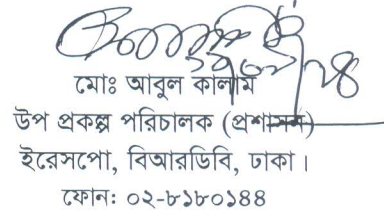 মোঃ আবুল কালাম
উপ প্রকল্প পরিচালক (প্রশাসন)
ইরেসপো, বিআরডিবি, ঢাকা।
ফোন: ০২-৮১৮০১৪৪